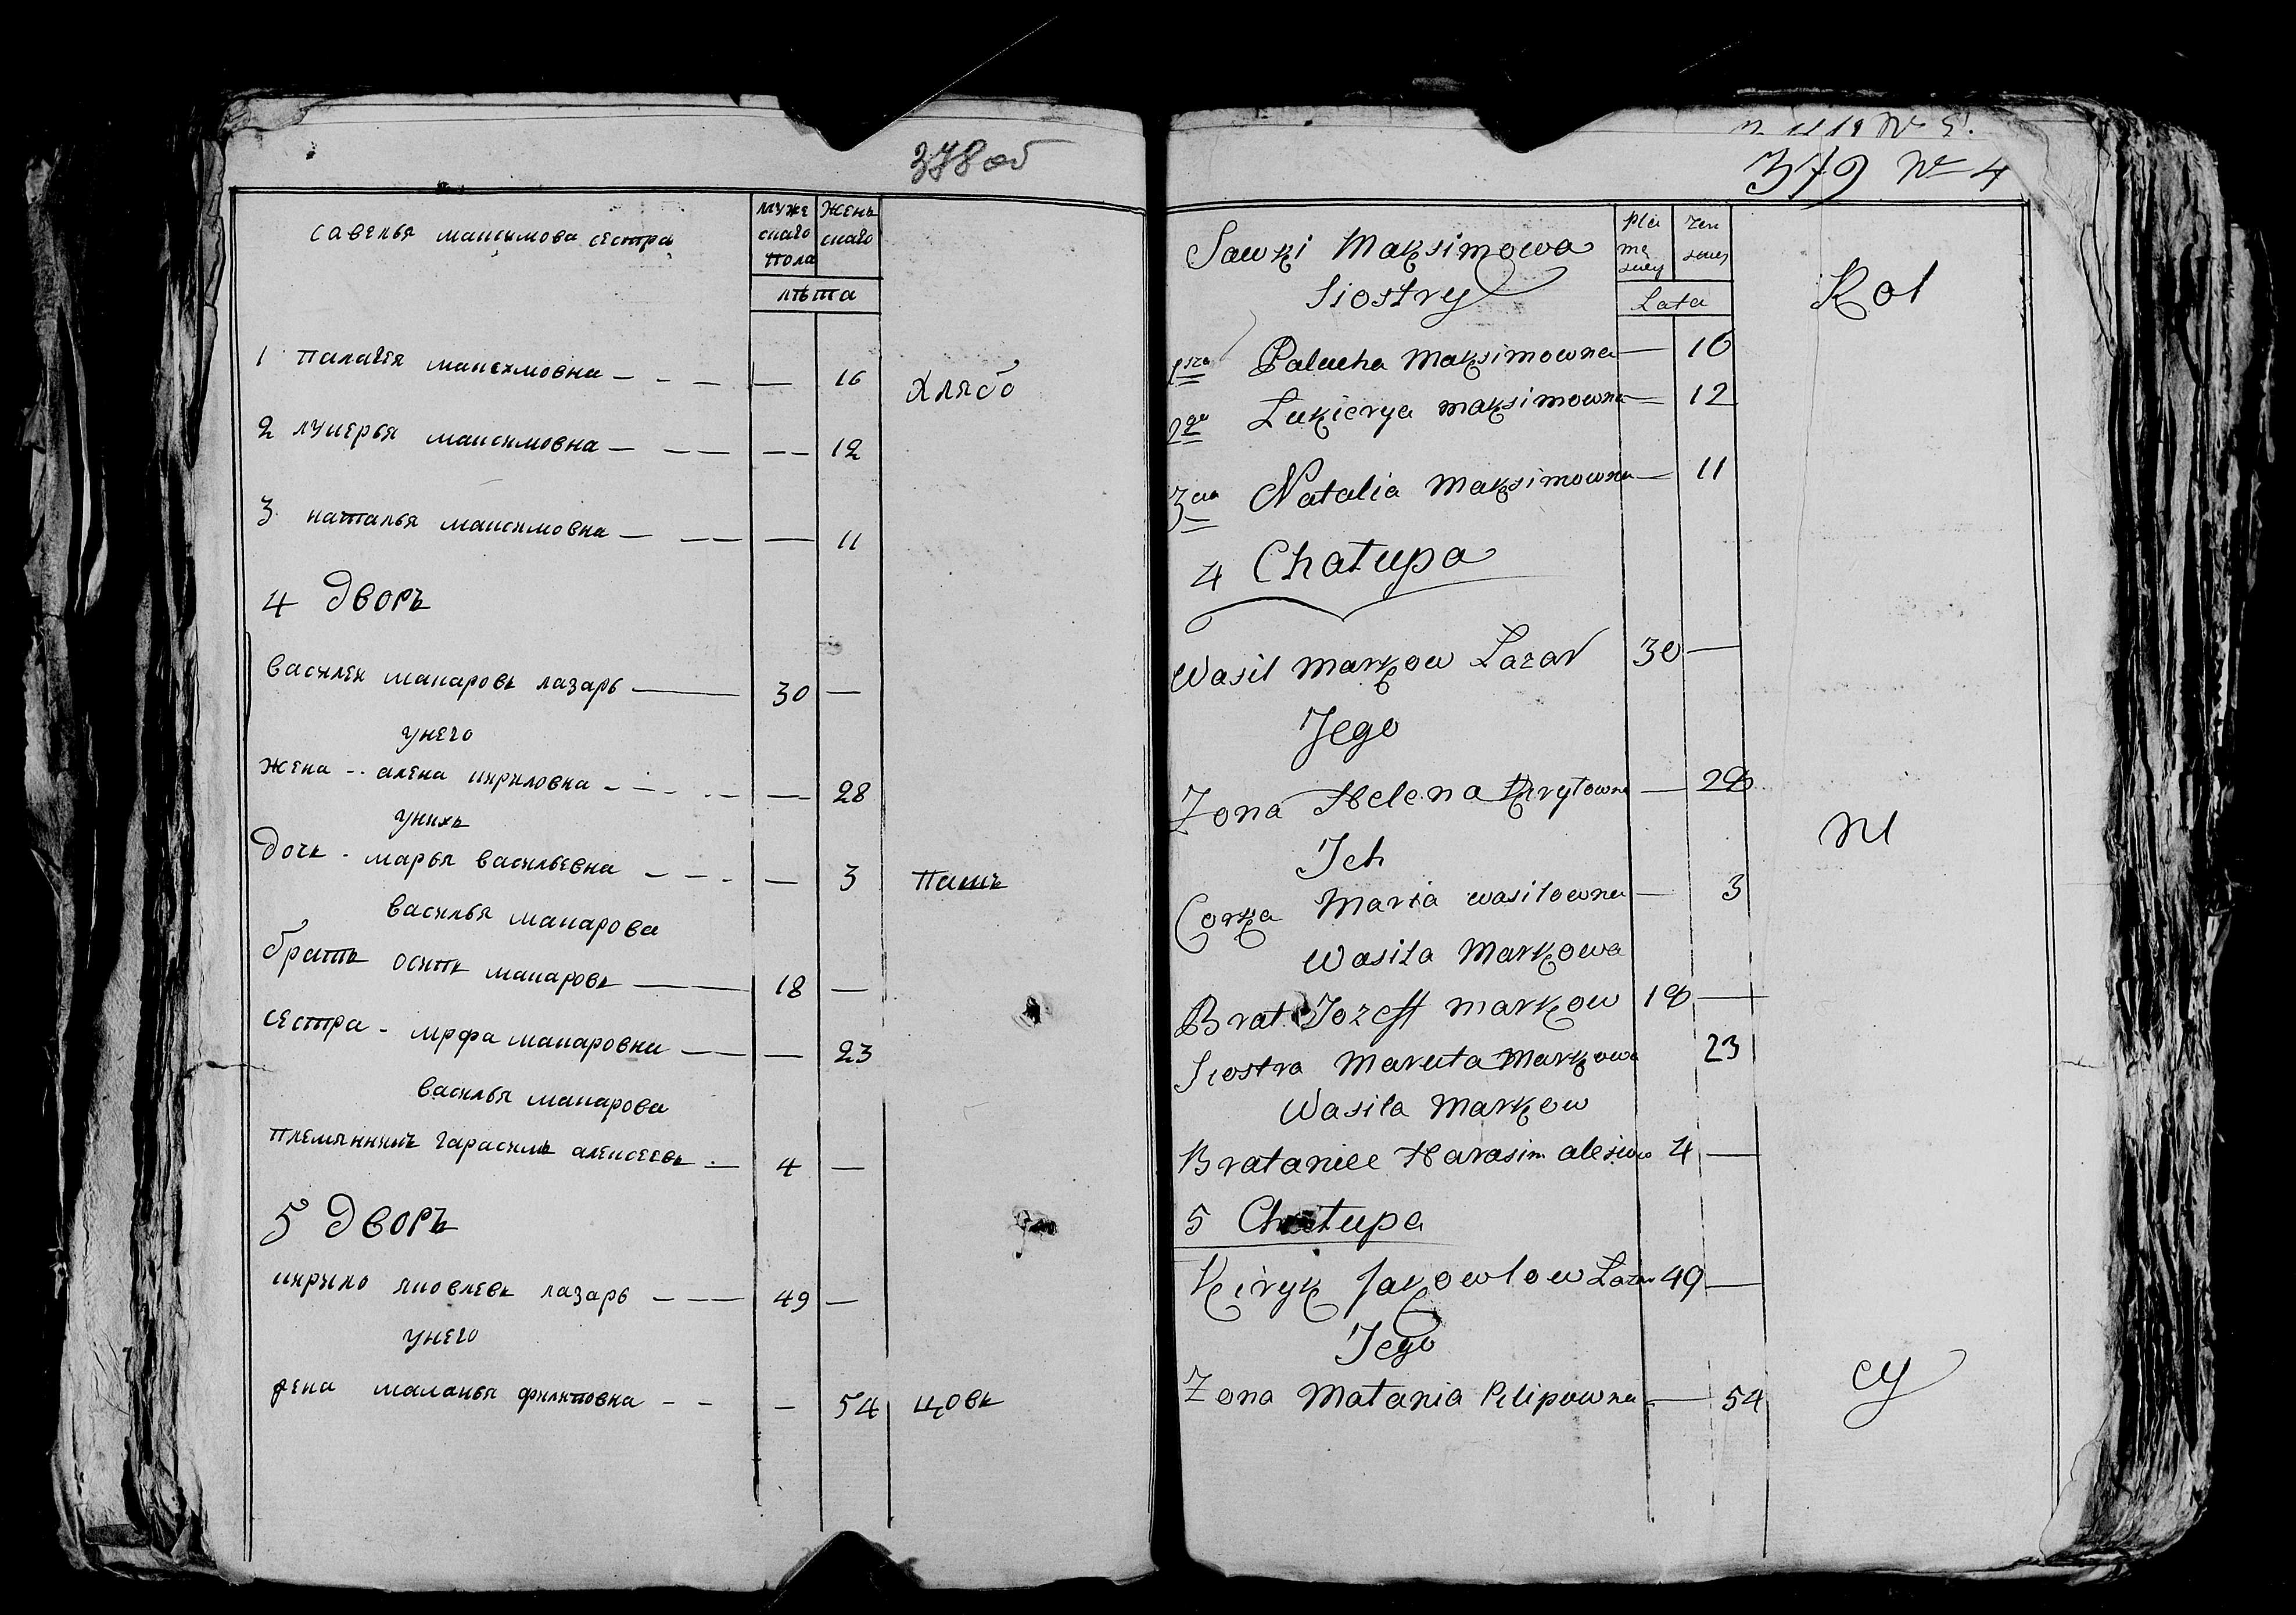 378 об
савелья максимова сестра
муже
скаго
пола
жень
скаго
лѣта
1 палагея максимовна — 16
хлябо
2 лукерья максимовна — 12
3 наталья максимовна — 11
4 дворъ
василеи макаровъ лазарь 30 —
унего
жена алена кириловна — 28
унихъ
дочь марья васильевна — 3
пашъ
василья макарова
братъ осипъ макаровъ 18 —
сестра мрфа макаровна — 23
василья макарова
племянникъ гарасимъ алексеевъ 4 —
5 дворъ
кирило яковлевъ лазарь 49 —
унего
жена маланья филиповна — 54
цовъ
379 № 4
Sawki Maksimowa
Siostry
Lata
Kol
1sza Palucha Maksimowna — 16
2ga Lukierya Maksimowna — 12
3cia Natalia Maksimowna — 11
4 Chałupa
Wasil Markow Lazar 30 —
Jego
Zona Helena Kirylowna — 28
Ich
Corka Maria wasilowna — 3
Wasila Markowa
Brat Jozeff Markow 18 —
Siostra Maruta Markowa 23
Wasila Markow
Bratanice Harasim alexiew 4 —
5 Chałupa
Kiryk Jakowlow Lazar 49 —
Jego
Zona Matania Pilipowna — 54